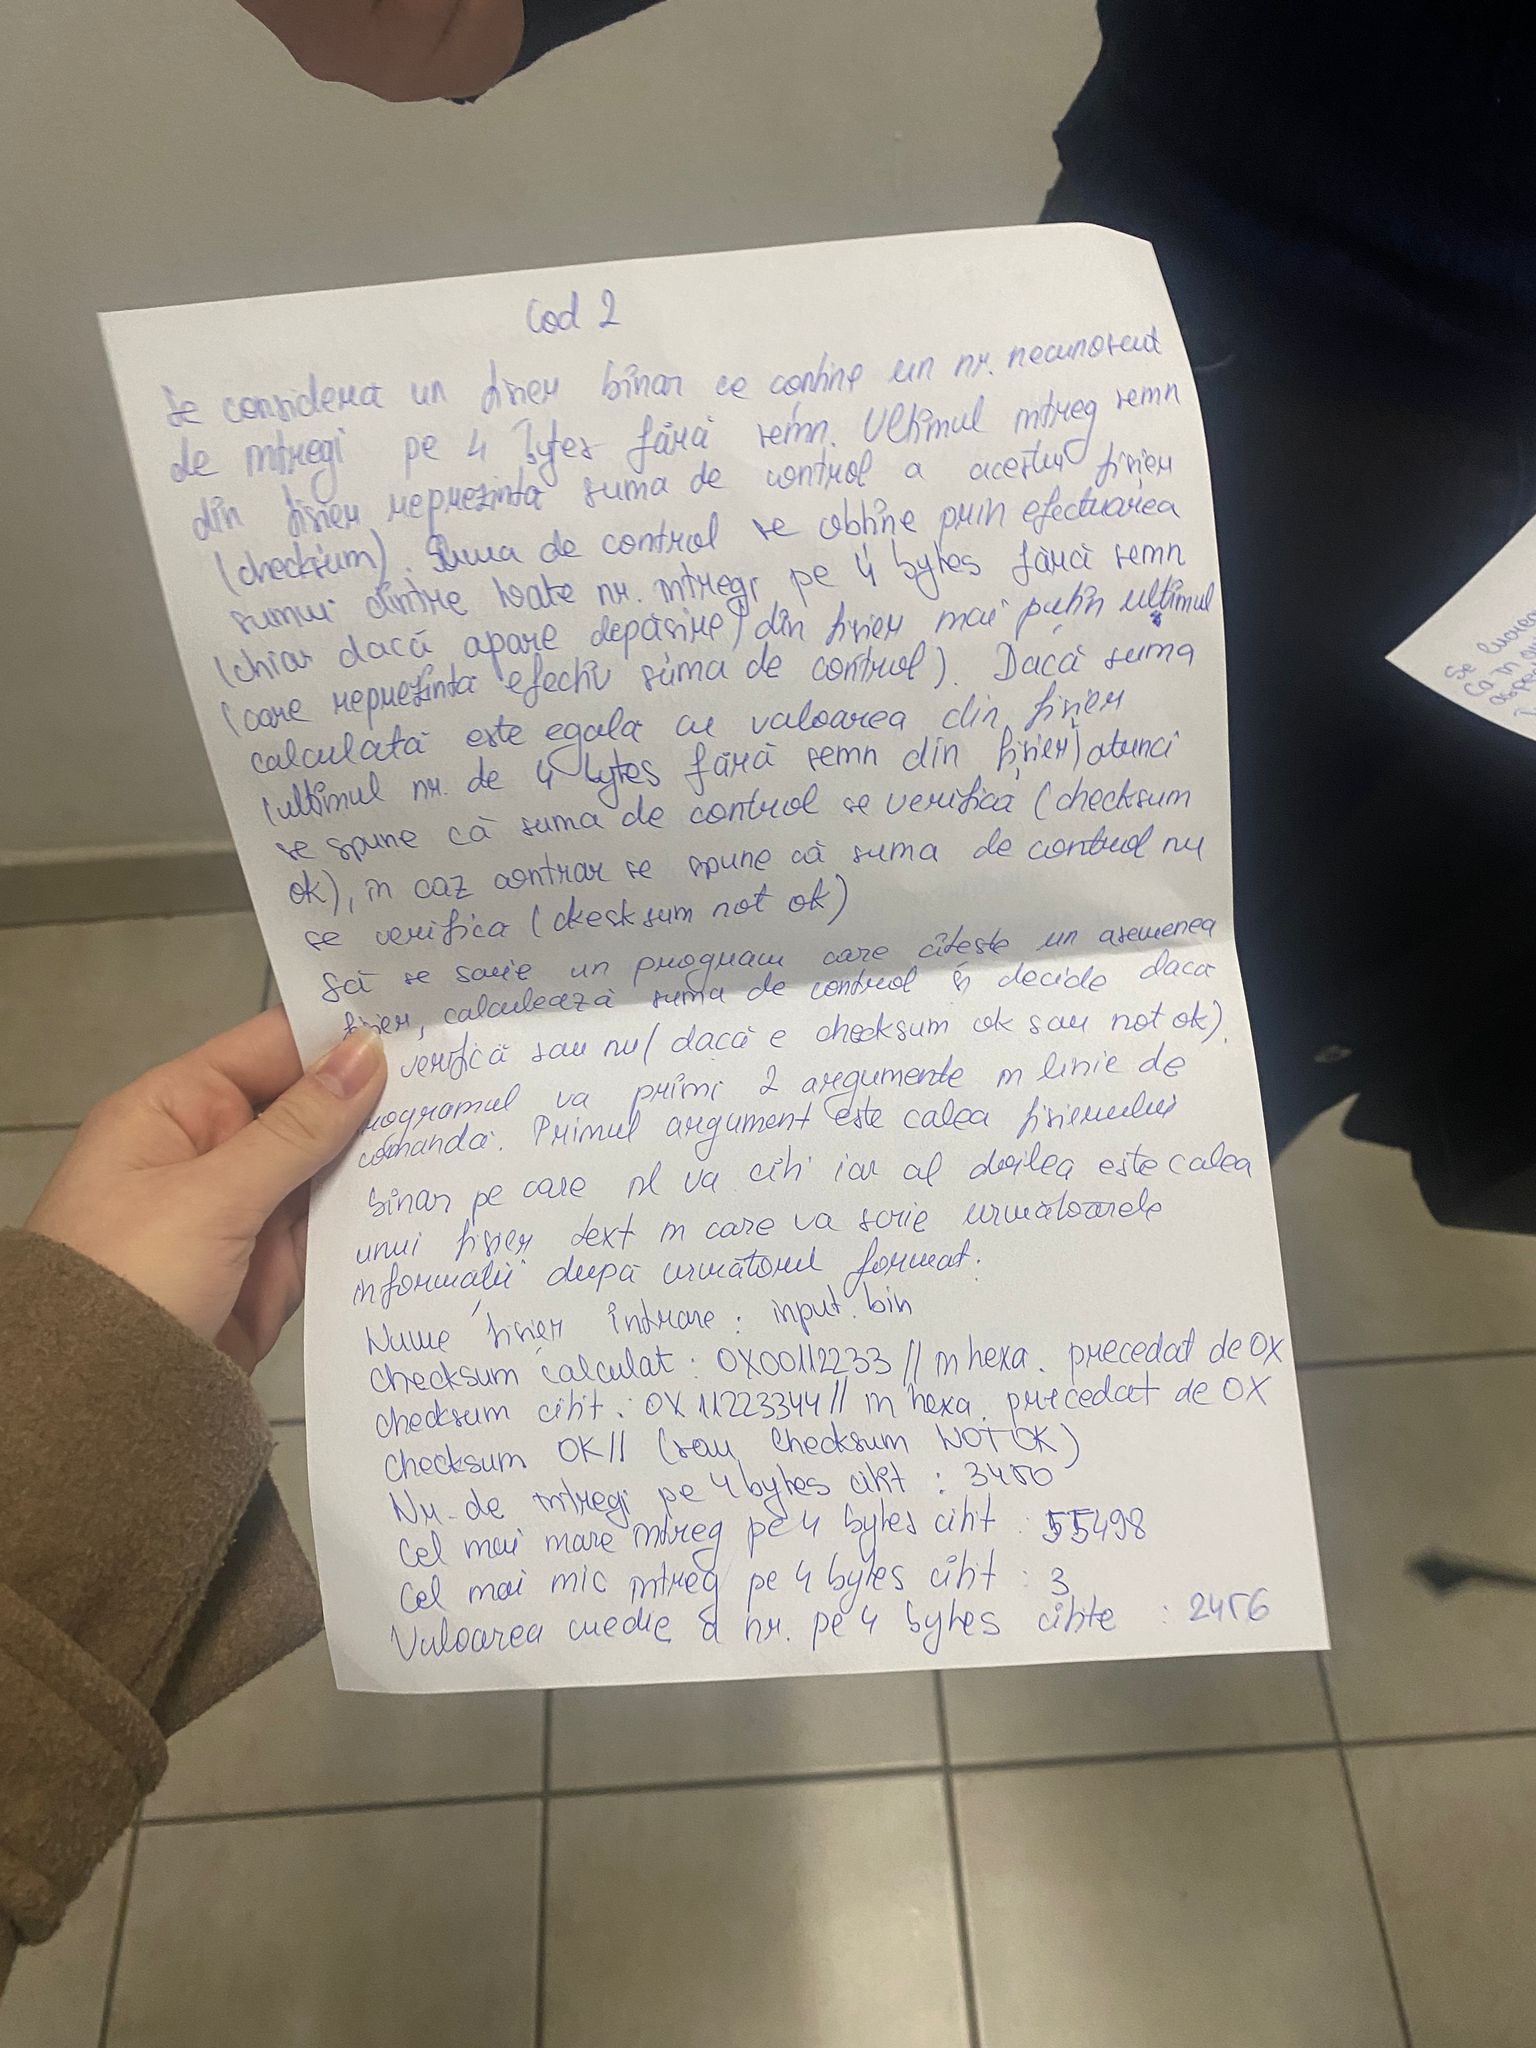 Cod 2
Se consideră un fisier binar ce conține un nr. necunoscut
de întregi pe 4 bytes fără semn. Ultimul întreg semn
din fisier reprezinta suma de control a acestui fisier
(checksum). Suma de control se obține prin efectuarea
sumei dintre toate nr. intregi pe 4 bytes fără semn
(chiar dacă apare depășire) din fisier mai puțin ultimul
(care reprezintă efectiv suma de control). Dacă suma
calculată este egală cu valoarea din fișier
(ultimul nr. de 4 bytes fără semn din fișier) atunci
se spune că suma de control se verifică (checksum
ok), in caz contrar se spune că suma de control nu
se verifica (checksum not ok)
Să se scrie un program care citește un asemenea
fisier, calculează suma de control și decide dacă
verifică sau nu (dacă e checksum ok sau not ok).
rogramul va primi 2 argumente in linie de
comandă. Primul argument este calea fisierului
binar pe care il va citi iar al doilea este calea
unui fisier text in care va scrie următoarele
informații după următorul format:
Nume fisier intrare: input.bin
checksum calculat: 0X00112233 // in hexa. precedat de 0X
checksum citit: 0X11223344 // in hexa. precedat de 0X
checksum OK // (sau checksum NOT OK)
Nr. de intregi pe 4 bytes citit : 3450
Cel mai mare intreg pe 4 bytes citit : 55498
Cel mai mic intreg pe 4 bytes citit : 3
Valoarea medie a nr. pe 4 bytes citite : 2456
Se
Ca